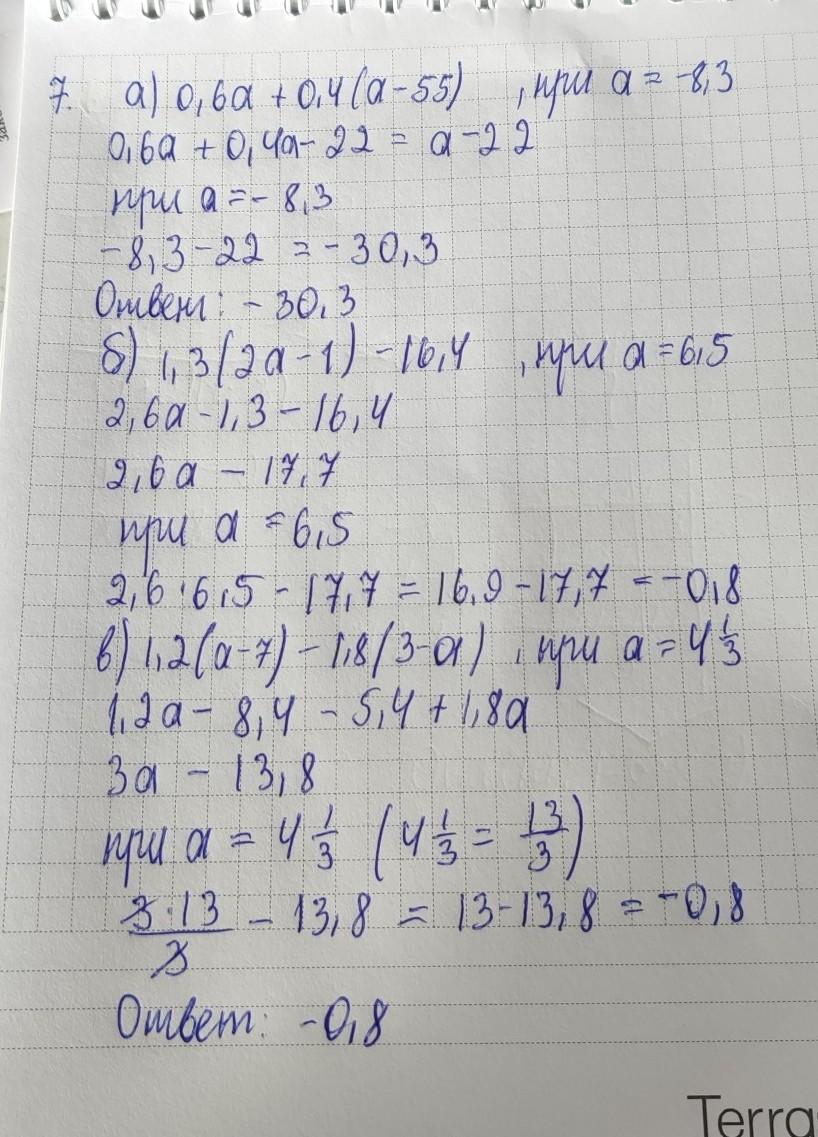 7. а) 0,6a + 0,4(a - 55) , при a = -8,3
0,6a + 0,4a - 22 = a - 22
при a = - 8,3
-8,3 - 22 = - 30,3
Ответ: - 30,3
б) 1,3(2a - 1) - 16,4 , при a = 6,5
2,6a - 1,3 - 16,4
2,6a - 17,7
при a = 6,5
2,6 · 6,5 - 17,7 = 16,9 - 17,7 = -0,8
в) 1,2(a - 7) - 1,8(3 - a) , при a = 4 1/3
1,2a - 8,4 - 5,4 + 1,8a
3a - 13,8
при a = 4 1/3 (4 1/3 = 13/3)
3 · 13/3 - 13,8 = 13 - 13,8 = -0,8
Ответ: -0,8
Terra